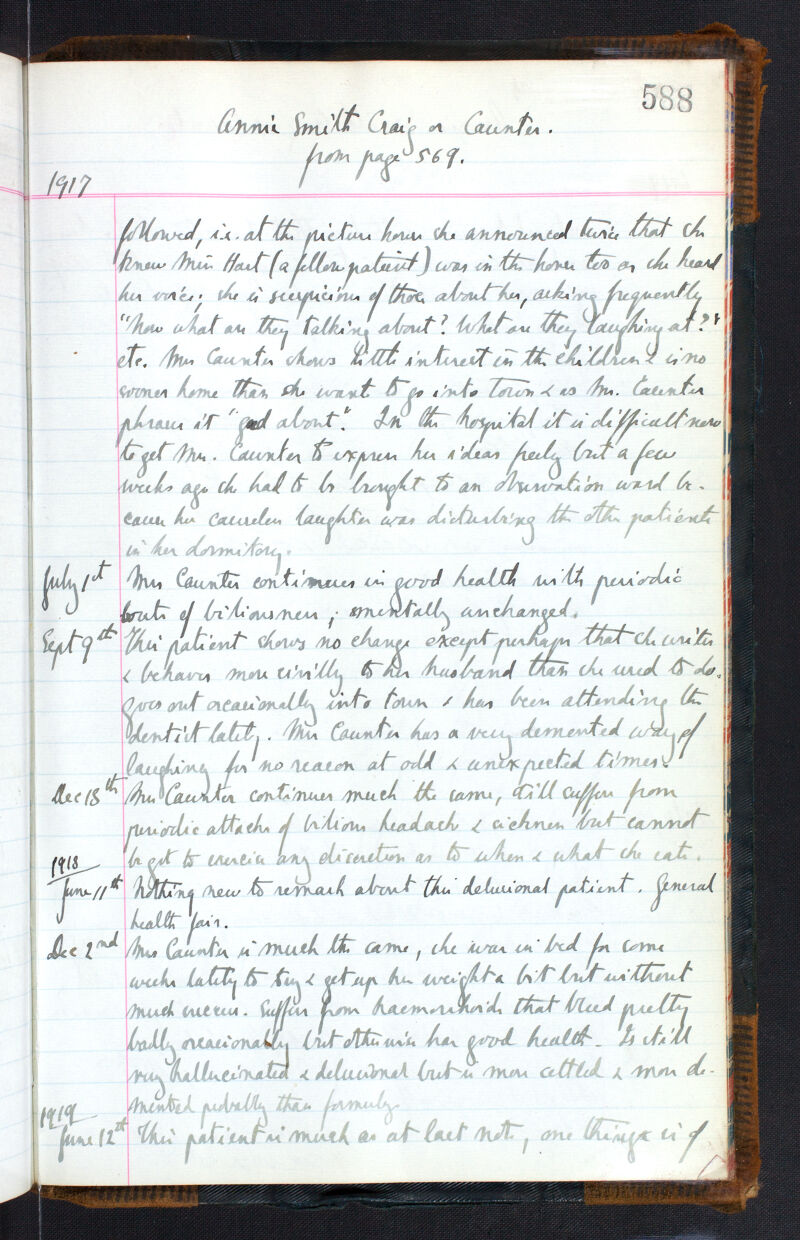 588
Annie Smith Craig or Caunter.
from page 569.
1917
followed, i.e. at the picture house she announced twice that she
knew Miss Hart (a fellow patient) was in the house too as she heard
her voice; she is suspicious of those about her, asking frequently
"Now what are they talking about? What are they laughing at?"
etc. Mrs Caunter shows little interest in the children & is no
sooner home than she want to go into town & as Mr. Caunter
phrases it "gad about". In the hospital it is difficult now
to get Mrs. Caunter to express her ideas freely but a few
weeks ago she had to be brought to an observation ward be-
cause her causeless laughter was disturbing the other patients
in her dormitory.
July 1st Mrs Caunter continues in good health with periodic
bouts of biliousness; mentally unchanged.
Sept 9th This patient shows no change except perhaps that she writes
& behaves more civilly to her husband than she used to do.
Goes out occasionally into town & has been attending the
dentist lately. Mrs Caunter has a very demented way of
laughing for no reason at odd & unexpected times.
Dec 18th Mrs Caunter continues much the same, still suffers from
periodic attacks of bilious headache & sickness but cannot
be got to exercise any discretion as to when & what she eats.
1918
June 11th Nothing new to remark about this delusional patient. General
health fair.
Dec 2nd Mrs Caunter is much the same, she was in bed for some
weeks lately to try & get up her weight a bit but without
much success. Suffers from haemorrhoids that bleed pretty
badly occasionally but otherwise has good health. Is still
very hallucinated & delusional but is more settled & more de-
mented probably than formerly.
1919
June 12th This patient is much as at last note, one thing is if